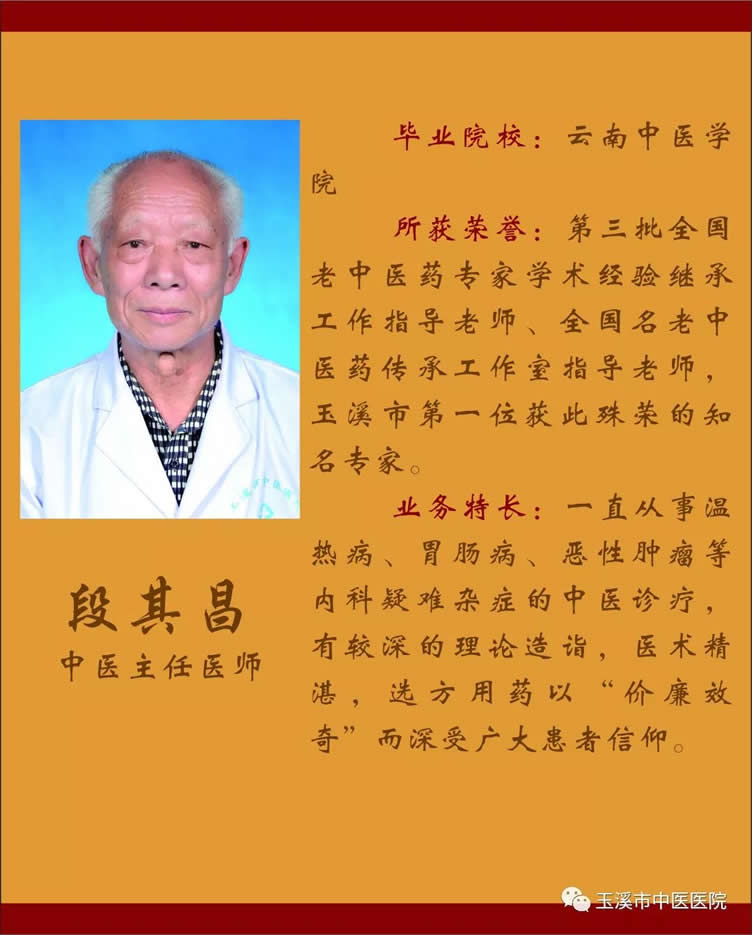 毕业院校：云南中医学
院
所获荣誉：第三批全国
老中医药专家学术经验继承
工作指导老师、全国名老中
医药传承工作室指导老师，
玉溪市第一位获此殊荣的知
名专家。
业务特长：一直从事温
热病、胃肠病、恶性肿瘤等
内科疑难杂症的中医诊疗，
有较深的理论造诣，医术精
湛，选方用药以“价廉效
奇”而深受广大患者信仰。
段其昌
中医主任医师
玉溪市中医医院